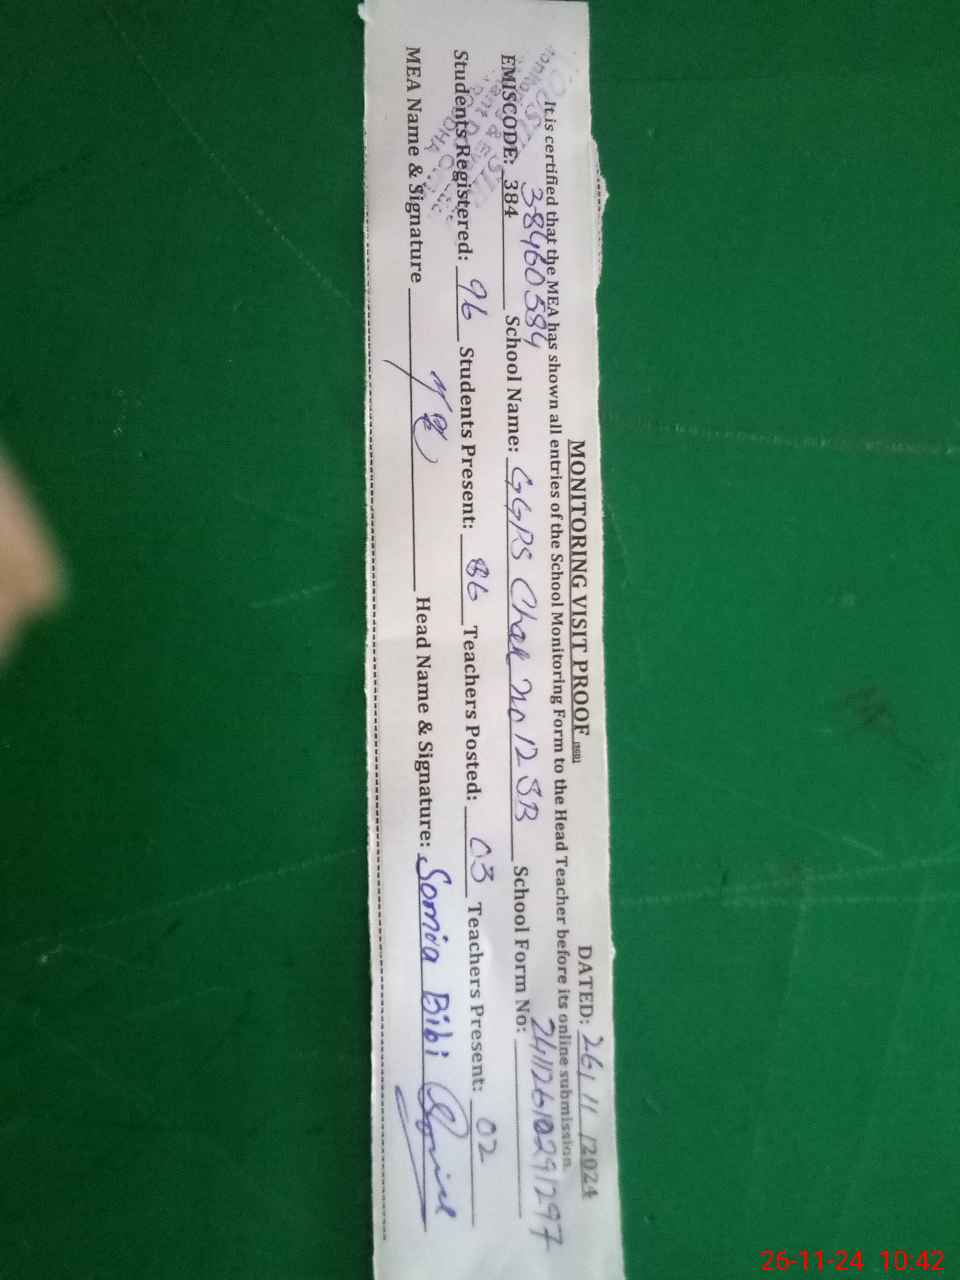 MONITORING VISIT PROOF DATED: 26/11/2024
It is certified that the MEA has shown all entries of the School Monitoring Form to the Head Teacher before its online submission.
EMISCODE: 384 38460584 School Name: GGPS Chak no 12 SB School Form No: 24112610291297
Students Registered: 96 Students Present: 86 Teachers Posted: 03 Teachers Present: 02
MEA Name & Signature Head Name & Signature: Somia Bibi
26-11-24 10:42